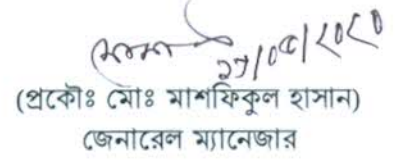 ২৭/০৫/২০২০
(প্রকৌঃ মোঃ মাশফিকুল হাসান)
জেনারেল ম্যানেজার